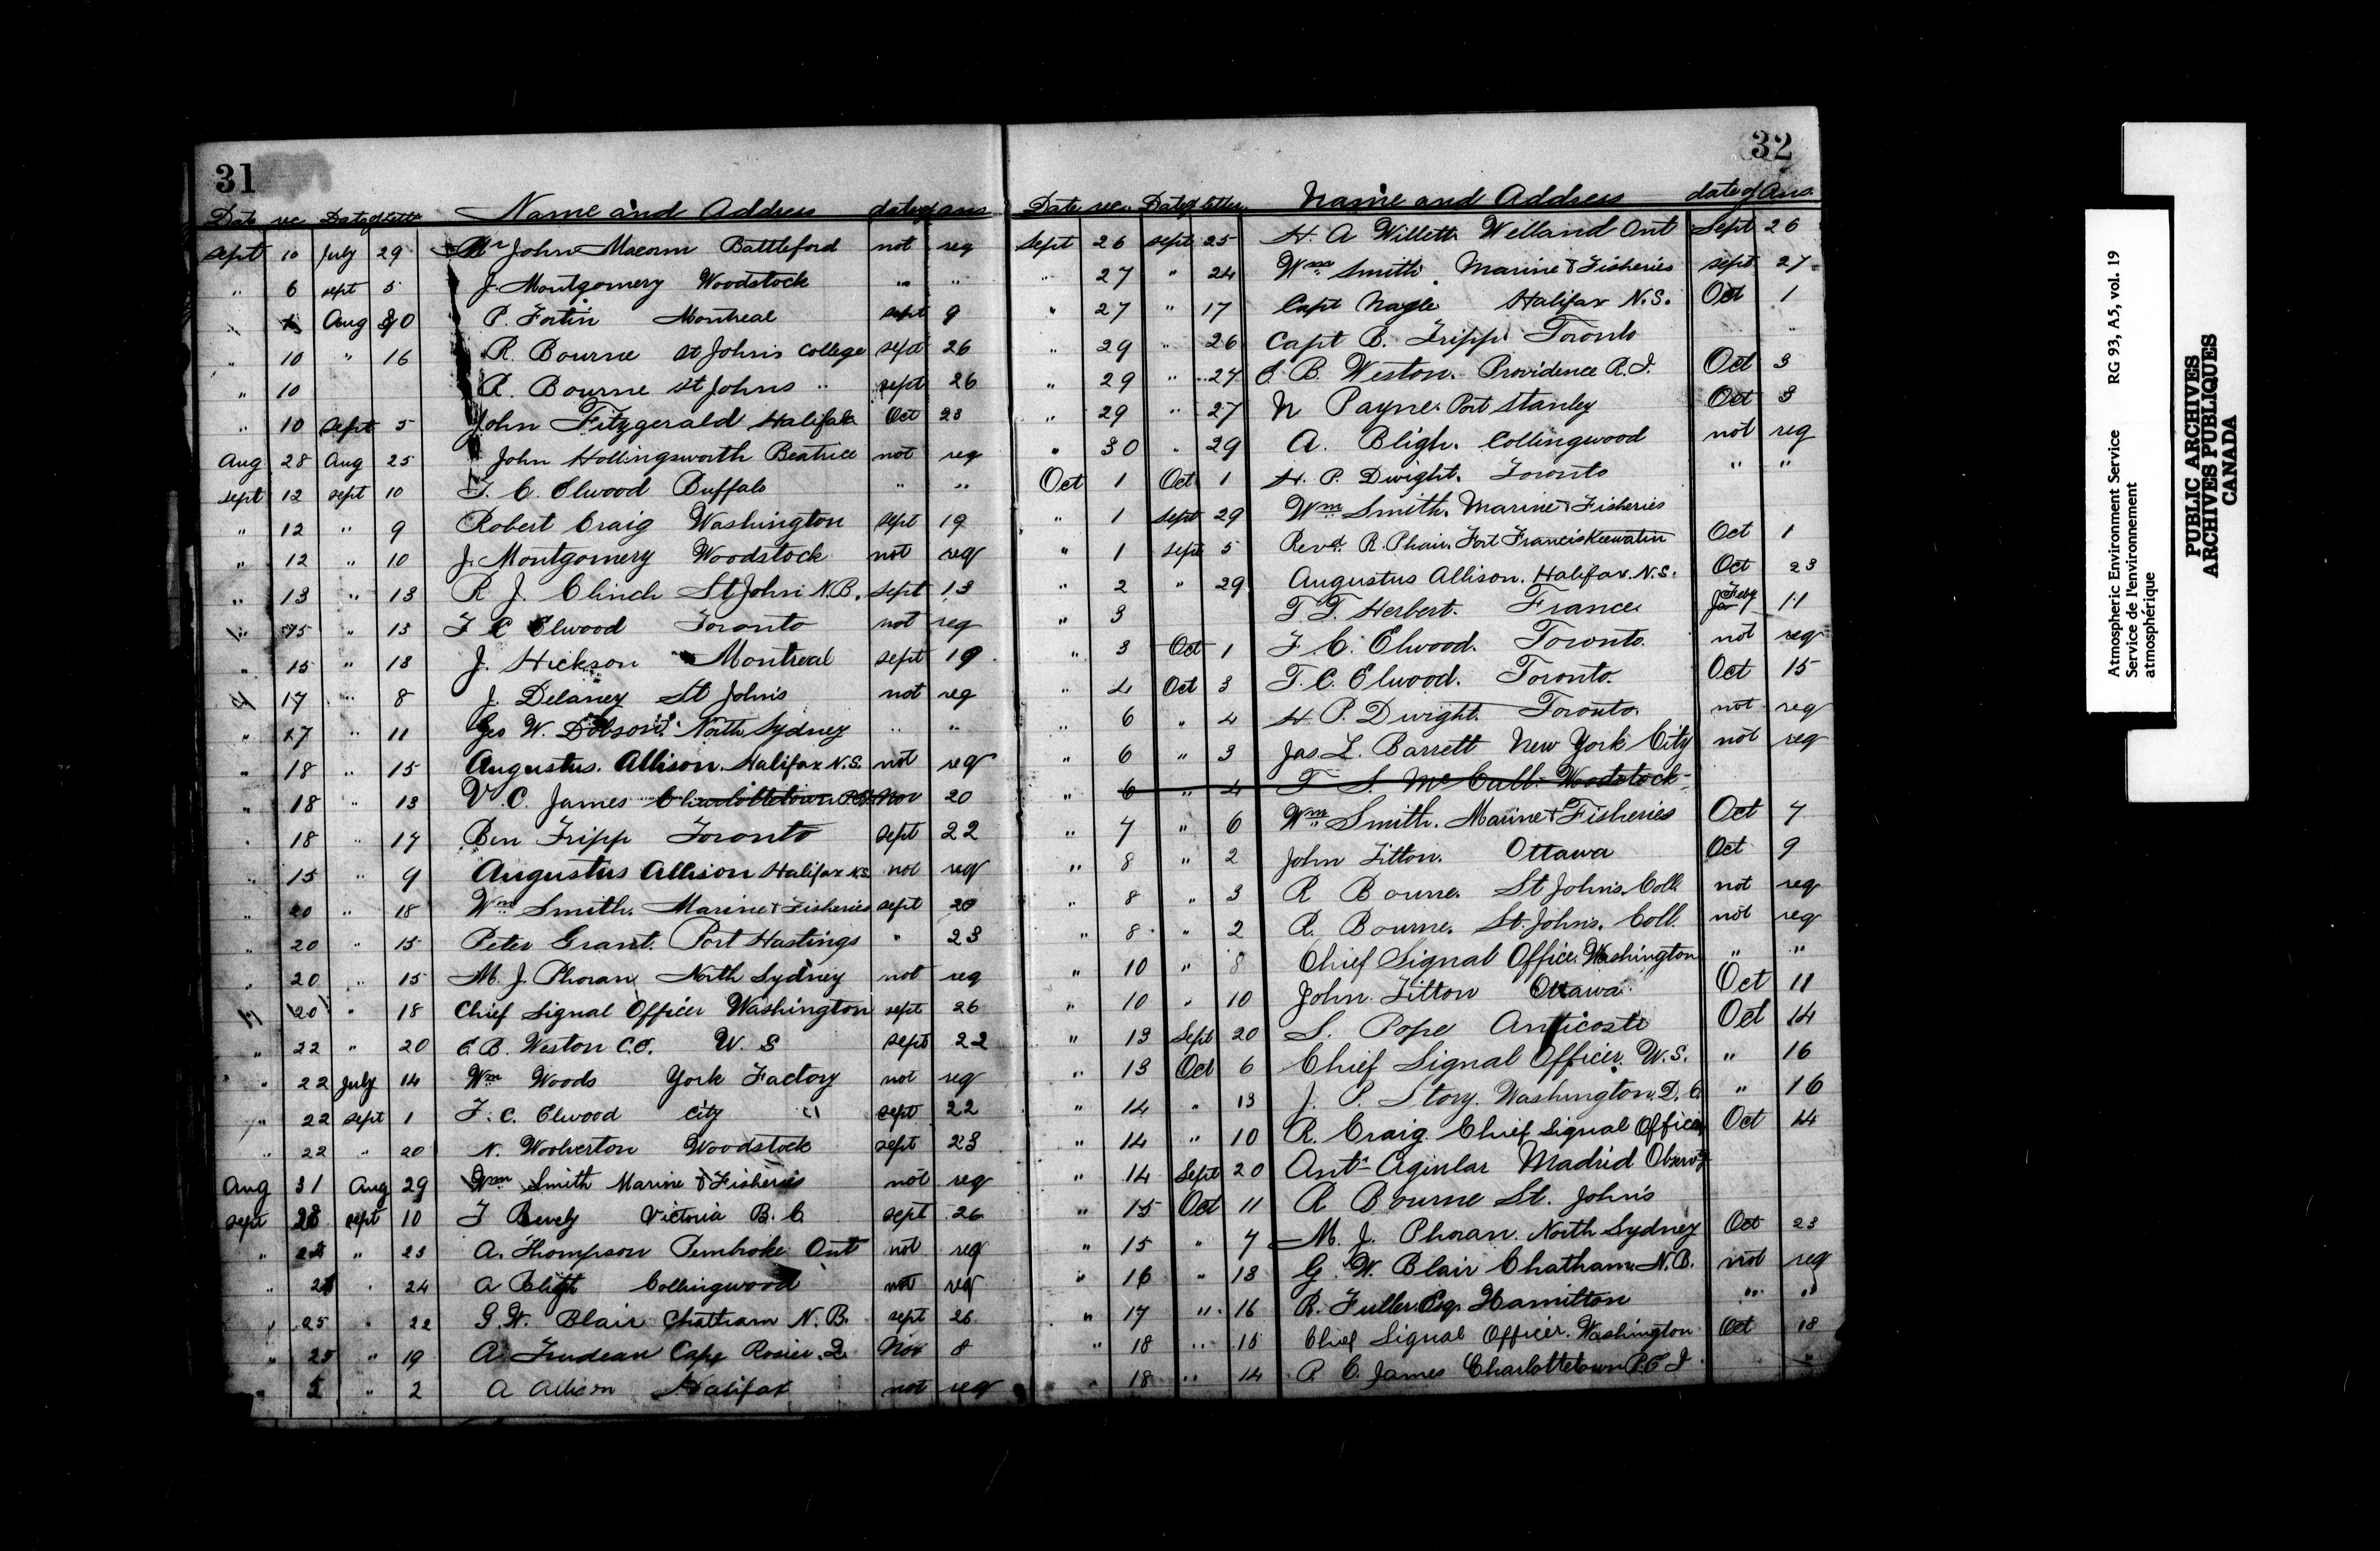 31
Date rec Date of Letter Name and Address date of ans
Sept 10 July 29 Mr John Macom Battleford not req
" 6 sept 5 J. Montgomery Woodstock " "
" Aug P. Fortin Montreal sept 9
" 10 " 16 R. Bourne St Johns College sept 26
" 10 R. Bourne St Johns " sept 26
" 10 Sept 5 John Fitzgerald Halifax Oct 23
Aug 28 Aug 25 John Hollingsworth Beatrice not req
sept 12 sept 10 F. C. Elwood Buffalo " "
" 12 " 9 Robert Craig Washington sept 19
" 12 " 10 J. Montgomery Woodstock not req
" 13 " 13 R. J. Clinch St John N.B. sept 13
" 15 " 13 F C Elwood Toronto not req
" 15 " 13 J. Hickson Montreal sept 19
" 17 " 8 J. Delaney St John's not req
" 17 " 11 Geo W. Dobson North Sydney " "
" 18 " 15 Augustus. Allison. Halifax N.S. not req
" 18 " 13 C. James Charlottetown Nov 20
" 18 " 17 Ben Tripp Toronto sept 22
" 15 " 9 Augustus Allison Halifax N.S. not req
" 20 " 18 Wm Smith. Marine & Fisheries sept 20
" 20 " 15 Peter Grant. Port Hastings " 23
" 20 " 15 M. J. Phoran North Sydney not req
" 20 " 18 Chief Signal Officer Washington sept 26
" 22 " 20 C B. Weston C.E. U. S sept 22
" 22 July 14 Wm Woods York Factory not req
" 22 sept 1 F. C. Elwood City sept 22
" 22 " 20 N. Woolverton Woodstock sept 23
Aug 31 Aug 29 Wm Smith Marine & Fisheries not req
sept sept 10 Victoria B. C. sept 26
" " 23 A. Thompson Pembroke Ont not req
" " 24 A Collingwood not req
" 25 " 22 G. W. Blair Chatham N. B. sept 26
" 25 " 19 A. Trudeau Cape Rosier. Q. Nov 8
" " 2 A Allison Halifax not req
32
Date rec. Date of letter Name and Address date of Ans.
Sept 26 sept 25 H. A Willett Welland Ont Sept 26
" 27 " 24 Wm Smith Marine & Fisheries sept 27
" 27 " 17 Capt Nagle Halifax N.S. Oct 1
" 29 " 26 Capt B. Tripp Toronto "
" 29 " 27 C B. Weston. Providence R.I. Oct 3
" 29 " 27 N Payne. Port Stanley Oct 3
" 30 " 29 A. Bligh. Collingwood not req
Oct 1 Oct 1 H. P. Dwight. Toronto " "
" 1 Sept 29 Wm Smith. Marine & Fisheries
" 1 sept 5 Revd. R. Phair. Fort Francis Keewatin Oct 1
" 2 " 29 Augustus Allison. Halifax. N.S. Oct 23
" 3 T. T. Herbert. France Feby 11
" 3 Oct 1 F. C. Elwood. Toronto. not req
" 4 Oct 3 F. C. Elwood. Toronto. Oct 15
" 6 " 4 H. P. Dwight. Toronto. not req
" 6 " 3 Jas. L. Barrett New York City not req
" 6 " 4 T S. McCall. Woodstock
" 7 " 6 Wm Smith. Marine & Fisheries Oct 7
" 8 " 2 John Titton. Ottawa Oct 9
" 8 " 3 R Bourne. St John's. Coll. not req
" 8 " 2 R. Bourne. St. John's. Coll. not req
" 10 " 8 Chief Signal Office. Washington " "
" 10 " 10 John Titton Ottawa. Oct 11
" 13 Sept 20 S. Pope Anticosti Oct 14
" 13 Oct 6 Chief Signal Officer. W.S. " 16
" 14 " 13 J. P. Story. Washington. D. C. " 16
" 14 " 10 R. Craig. Chief Signal Office Oct 14
" 14 Sept 20 Ant. Aginlar Madrid Obsery
" 15 Oct 11 R Bourne St. John's
" 15 " 7 M. J. Phoran. North Sydney Oct 23
" 16 " 13 G. W. Blair Chatham N.B. not req
" 17 " 16 R. Fuller. Esq. Hamilton " "
" 18 " 15 Chief Signal Officer. Washington Oct 18
" 18 " 14 C. James Charlottetown P.E I. "
Atmospheric Environment Service RG 93, A5, vol. 19
Service de l'environnement
atmosphérique
PUBLIC ARCHIVES
ARCHIVES PUBLIQUES
CANADA